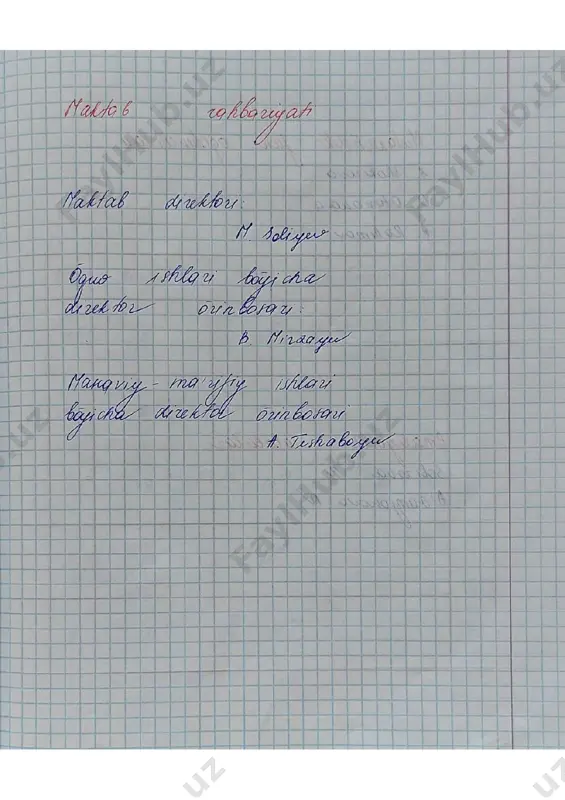 Maktab rahbariyati
Maktab direktori:
M. Soliyev
Oquv ishlari bõyicha
direktor õrinbosari:
B. Mirzayev
Manaviy-ma'rifiy ishlari
bõyicha direktor õrinbosari
A. Teshaboyev
FaylHub.uz
FaylHub.uz
FaylHub.uz
uz
uz